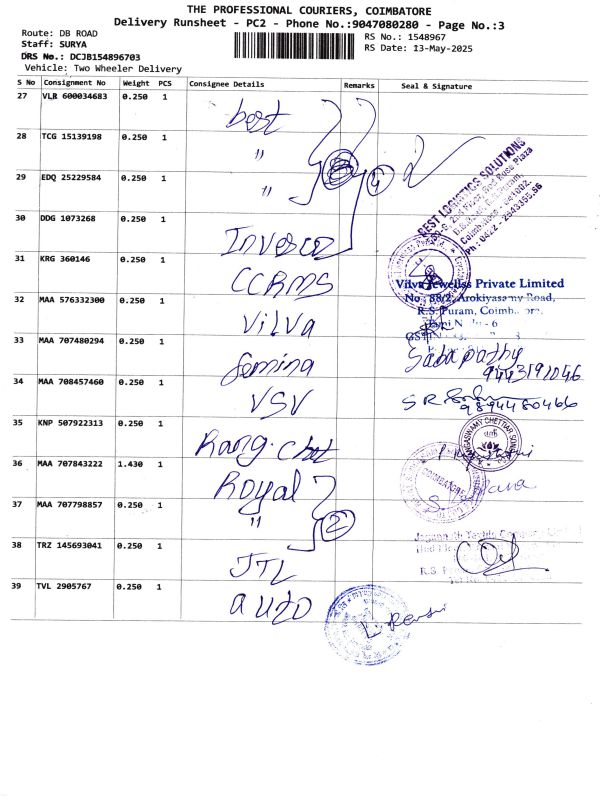 THE PROFESSIONAL COURIERS, COIMBATORE
Delivery Runsheet - PC2 - Phone No.:9047080280 - Page No.:3
Route: DB ROAD
Staff: SURYA
DRS No.: DCJB154896703
Vehicle: Two Wheeler Delivery
RS No.: 1548967
RS Date: 13-May-2025
S No Consignment No Weight PCS Consignee Details Remarks Seal & Signature
27 VLR 600034683 0.250 1 best
28 TCG 15139198 0.250 1 "
29 EDQ 25229584 0.250 1 " 4
BEST LOGISTICS SOLUTIONS
30 DDG 1073268 0.250 1 Invesco
31 KRG 360146 0.250 1 CCRMS
Vilva Jewellss Private Limited
32 MAA 576332300 0.250 1 Vilva
No : 88/2, Arokiyasamy Road,
R.S. Puram,
33 MAA 707480294 0.250 1 Femina
Sabapathy
9443191046
34 MAA 708457460 0.250 1 VSV
9894480466
35 KNP 507922313 0.250 1
36 MAA 707843222 1.430 1 Royal
COIMBATORE
37 MAA 707798857 0.250 1 " 2
38 TRZ 145693041 0.250 1 JTL
39 TVL 2905767 0.250 1 auto